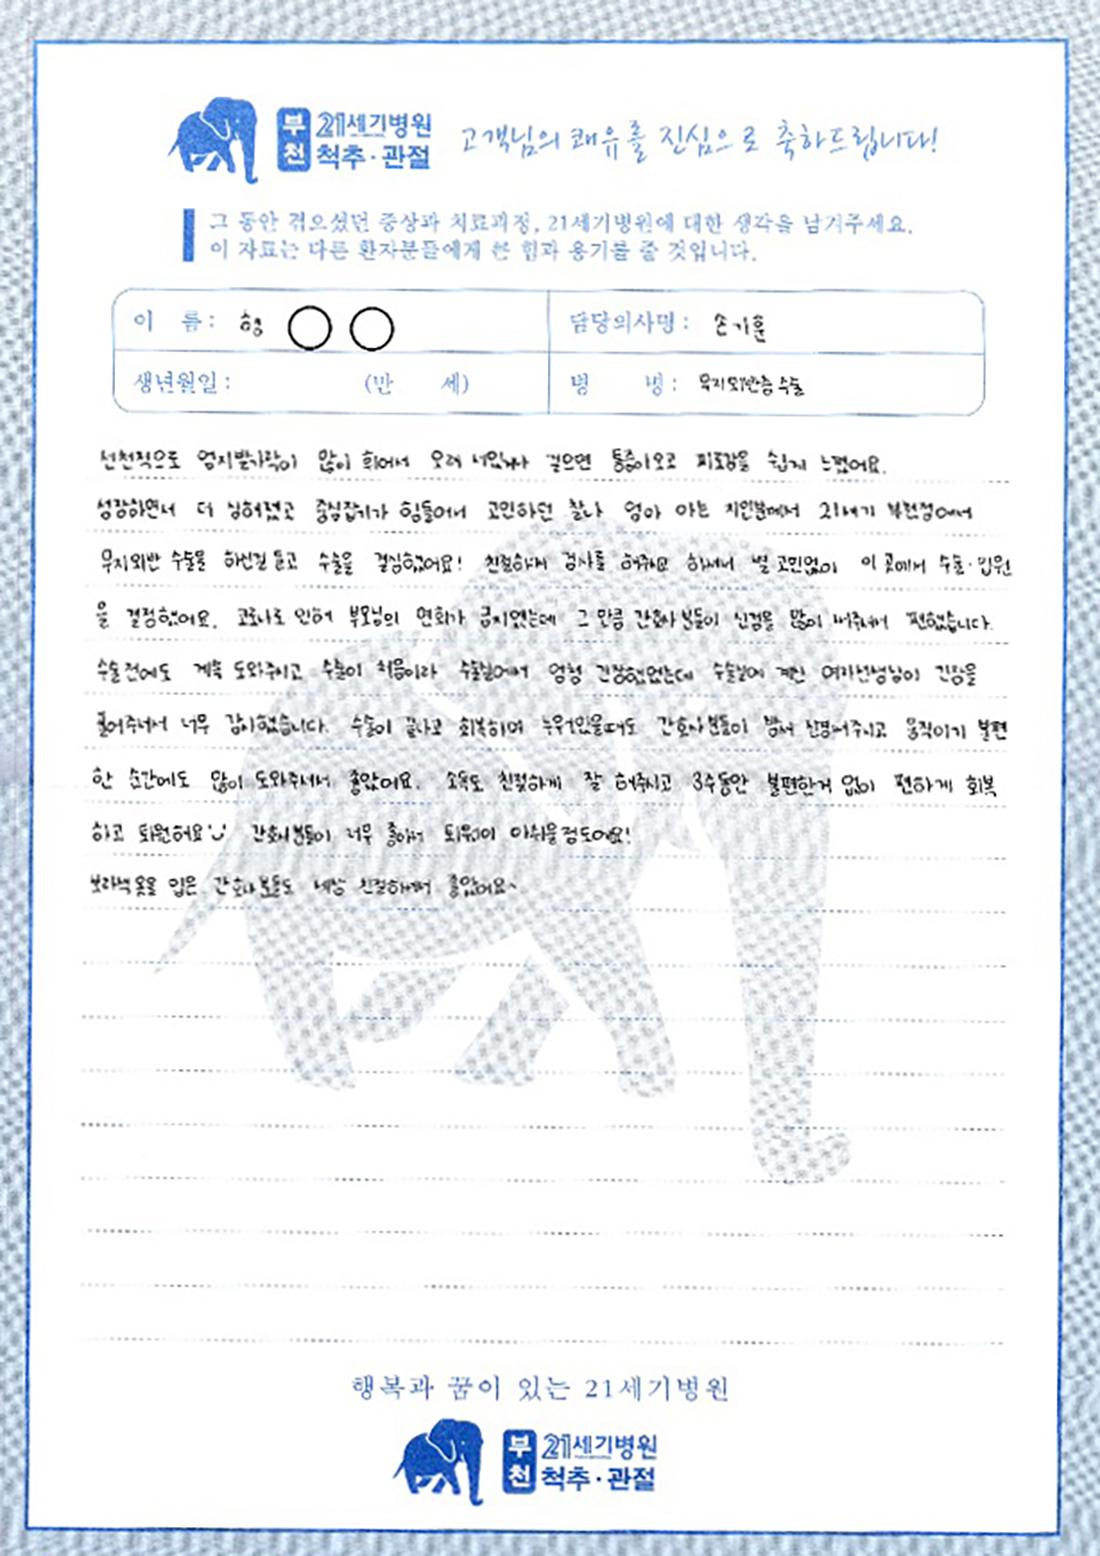 부천 21세기병원 척추·관절
고객님의 쾌유를 진심으로 축하드립니다!
그 동안 겪으셨던 증상과 치료과정, 21세기병원에 대한 생각을 남겨주세요.
이 자료는 다른 환자분들에게 큰 힘과 용기를 줄 것입니다.
이 름 : 형 ○ ○ 담당의사명 : 손기훈
생년월일 : (만 세) 병 명 : 무지외반증 수술
선천적으로 엄지발가락이 많이 휘어서 오래 서있거나 걸으면 통증이오고 피로감을 쉽게 느꼈어요.
성장하면서 더 심해졌고 중심잡기가 힘들어서 고민하던 찰나 엄마 아는 지인분께서 21세기 부천점에서
무지외반 수술을 하신걸 듣고 수술을 결심했어요! 친절하게 검사를 해주시고 하셔서 별 고민없이 이 곳에서 수술·입원
을 결정했어요. 코로나로 인해 부모님의 면회가 금지였는데 그 만큼 간호사분들이 신경을 많이 써주셔서 편했습니다.
수술전에도 계속 도와주시고 수술이 처음이라 수술실에서 엄청 긴장했었는데 수술실에 계신 여자선생님이 긴장을
풀어주셔서 너무 감사했습니다. 수술이 끝나고 회복하며 누워있을때도 간호사분들이 밤새 신경써주시고 움직이기 불편
한 순간에도 많이 도와주셔서 좋았어요. 소독도 친절하게 잘 해주시고 3주동안 불편한거 없이 편하게 회복
하고 퇴원해요 간호사분들이 너무 좋아서 퇴원이 아쉬울정도에요!
보라색 옷을 입은 간호사분들도 세상 친절하셔서 좋았어요~
행복과 꿈이 있는 21세기병원
부천 21세기병원 척추·관절